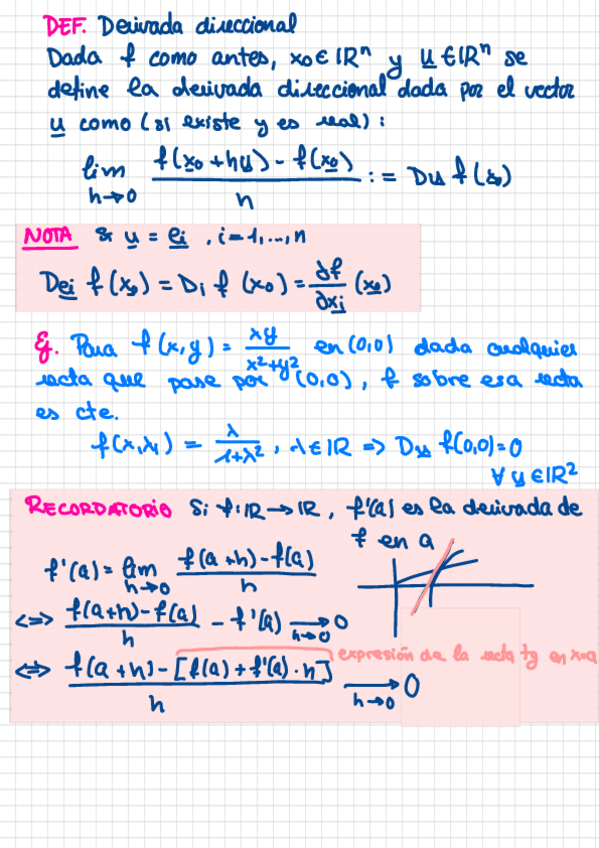 DEF. Derivada direccional
Dada f como antes, x0 ∈ IRⁿ y u ∈ IRⁿ se
define la derivada direccional dada por el vector
u como (si existe y es real):
lim h→0 (f(x0 + hu) - f(x0)) / h := Du f(x0)
NOTA Si u = ei, i=1,...,n
Dei f(x0) = Di f(x0) = ∂f/∂xi (x0)
Ej. Para f(x,y) = xy/(x²+y²) en (0,0) dada cualquier
recta que pase por (0,0), f sobre esa recta
es cte.
f(x,λx) = λ/(1+λ²), λ ∈ IR => Du f(0,0)=0
∀ u ∈ IR²
RECORDATORIO Si f: IR → IR, f'(a) es la derivada de
f en a
f'(a) = lim h→0 (f(a+h) - f(a)) / h
<=> (f(a+h) - f(a)) / h - f'(a) → 0 h→0
<=> (f(a+h) - [f(a) + f'(a)·h]) / h → 0 h→0
expresión de la recta tg en x=a